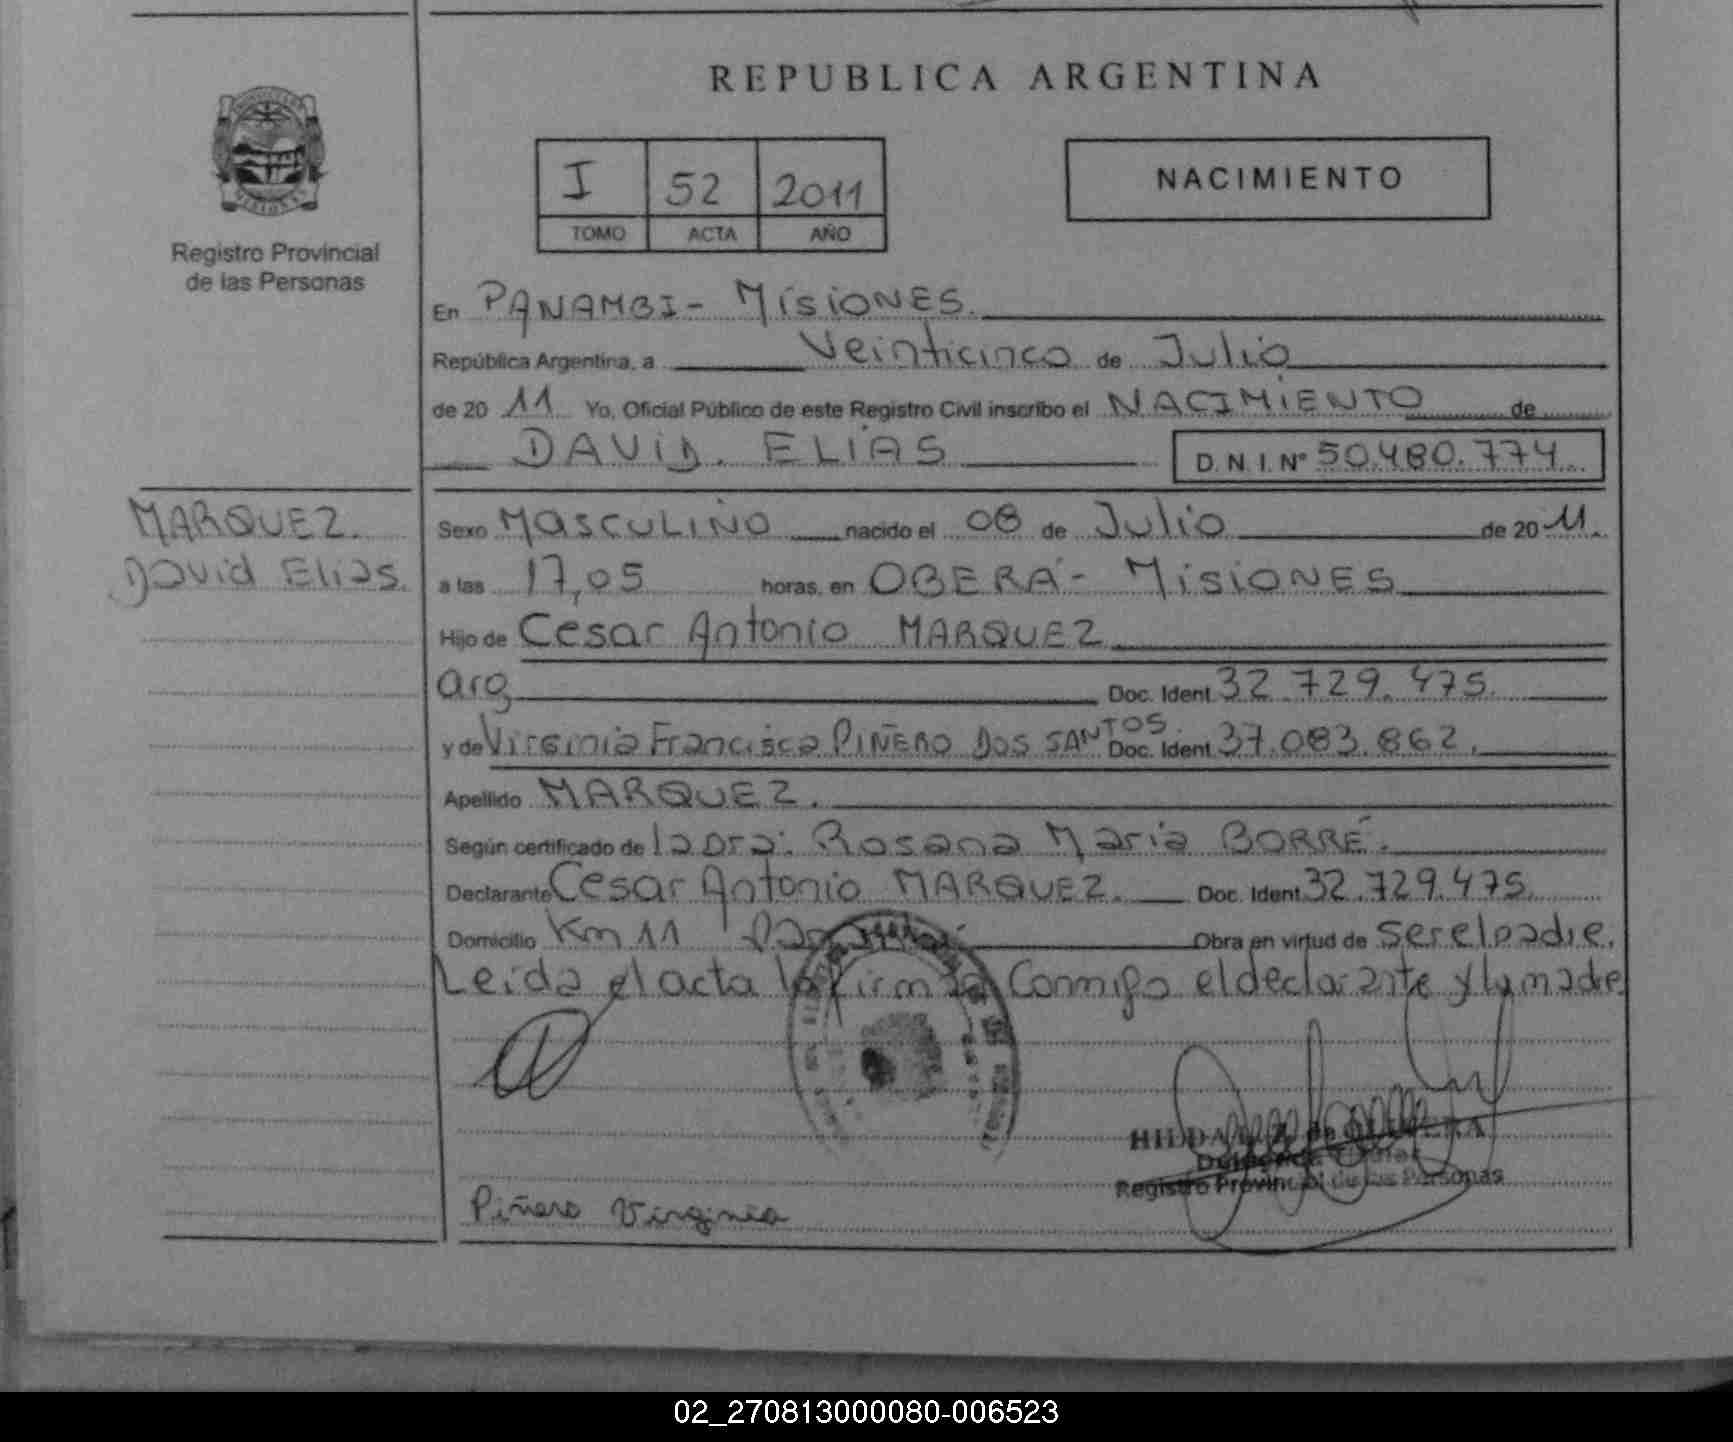 REPUBLICA ARGENTINA
I 52 2011
TOMO ACTA AÑO
NACIMIENTO
Registro Provincial
de las Personas
En PANAMBI - MisiONES.
República Argentina, a Veinticinco de Julio
de 20 11 Yo, Oficial Público de este Registro Civil inscribo el NACIMIENTO de
DAViD. ELIAS D.N.I.Nº 50.480.774
MARQUEZ.
David Elias.
Sexo MASCULINO nacido el 08 de Julio de 20 11.
a las 17,05 horas, en OBERÁ - MisiONES
Hijo de Cesar Antonio MARQUEZ
arg Doc. Ident. 32.729.475.
y de Virginia Francisca PIÑERO DOS SANTOS. Doc. Ident. 37.083.862.
Apellido MARQUEZ.
Según certificado de la Dra: Rosana Maria BORRÉ.
Declarante Cesar Antonio MARQUEZ. Doc. Ident. 32.729.475.
Domicilio Km 11 Obra en virtud de ser el padre.
Leida el acta la firma Conmigo el declarante y la madre
HILDA de
Registro Provincial de las Personas
Piñero Virginia
02_270813000080-006523